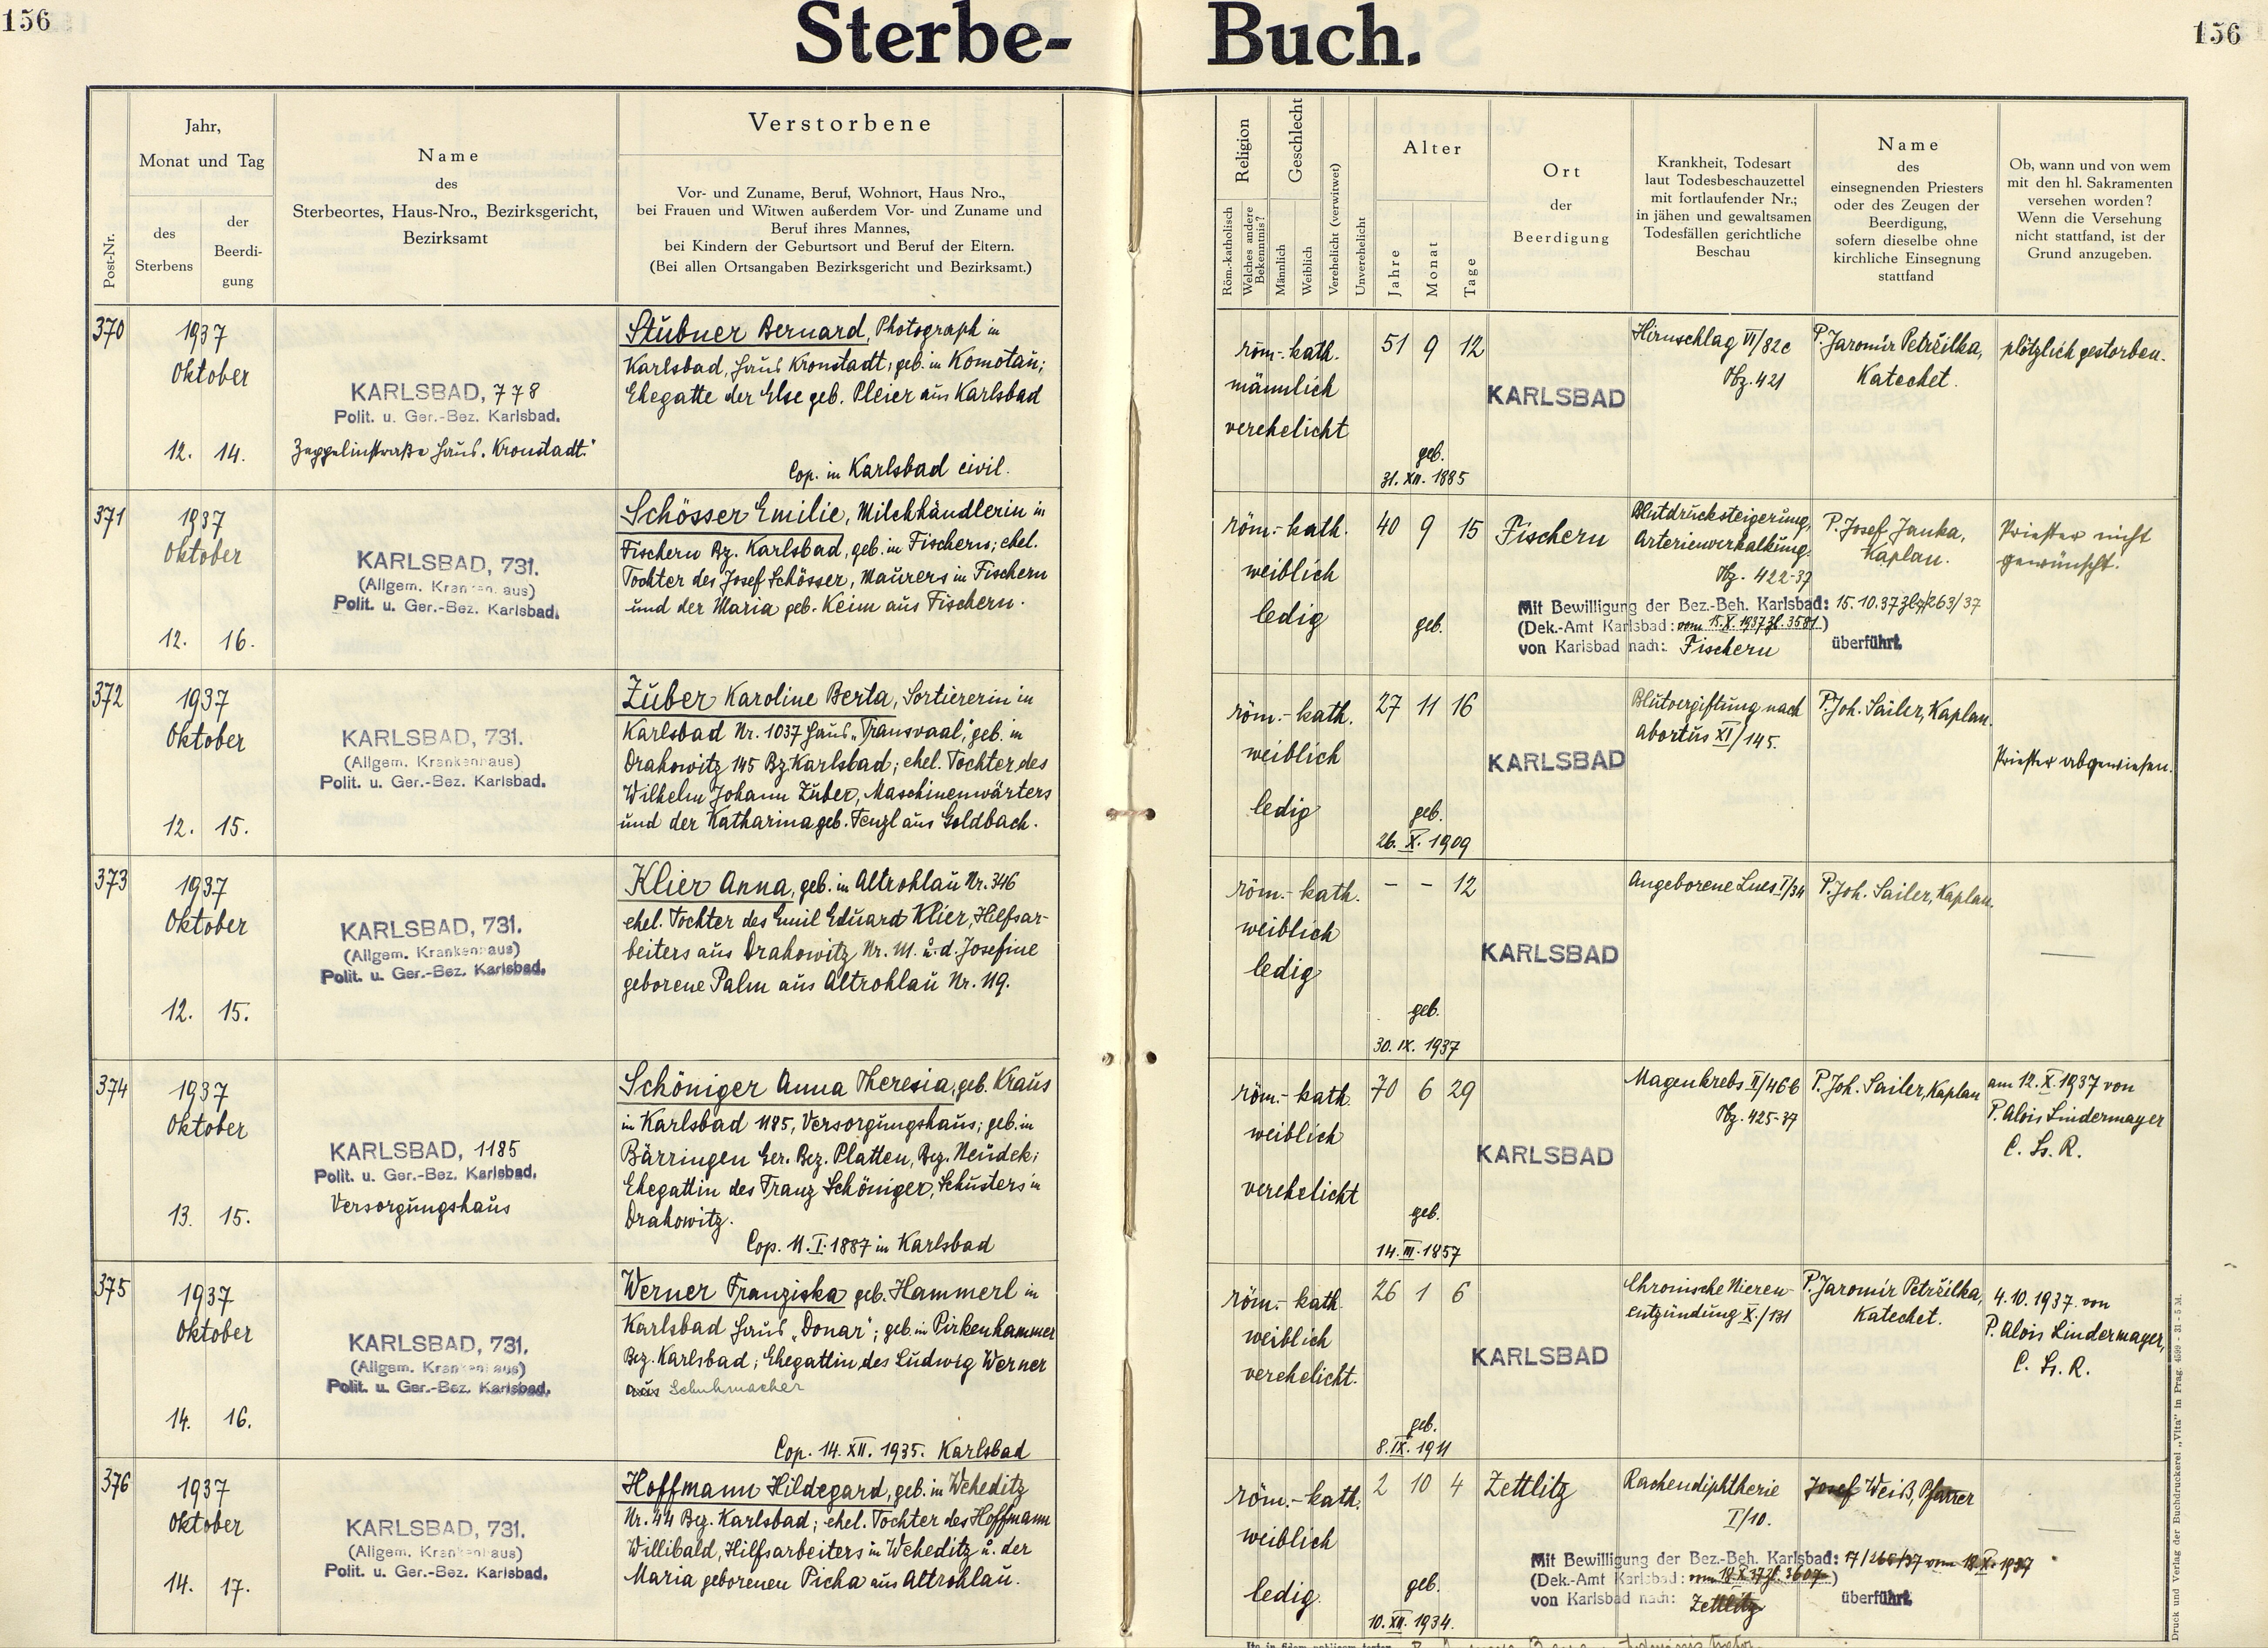 156
Sterbe-
Buch.
156
Post-Nr.
Jahr,
Monat und Tag
des
Sterbens
der
Beerdi-
gung
Name
des
Sterbeortes, Haus-Nro., Bezirksgericht,
Bezirksamt
Verstorbene
Vor- und Zuname, Beruf, Wohnort, Haus Nro.,
bei Frauen und Witwen außerdem Vor- und Zuname und
Beruf ihres Mannes,
bei Kindern der Geburtsort und Beruf der Eltern.
(Bei allen Ortsangaben Bezirksgericht und Bezirksamt.)
Religion
Röm.-katholisch
Welches andere
Bekenntnis?
Geschlecht
Männlich
Weiblich
Verehelicht (verwitwet)
Unverehelicht
Alter
Jahre
Monat
Tage
Ort
der
Beerdigung
Krankheit, Todesart
laut Todesbeschauzettel
mit fortlaufender Nr.;
in jähen und gewaltsamen
Todesfällen gerichtliche
Beschau
Name
des
einsegnenden Priesters
oder des Zeugen der
Beerdigung,
sofern dieselbe ohne
kirchliche Einsegnung
stattfand
Ob, wann und von wem
mit den hl. Sakramenten
versehen worden?
Wenn die Versehung
nicht stattfand, ist der
Grund anzugeben.
370
1937
Oktober
12. 14.
KARLSBAD, 778
Polit. u. Ger.-Bez. Karlsbad.
Zeppelinstraße Haus „Kronstadt."
Stübner Bernard, Photograph in
Karlsbad, Haus Kronstadt; geb. in Komotau;
Ehegatte der Else geb. Pleier aus Karlsbad
Cop. in Karlsbad civil.
röm.-kath.
männlich
verehelicht
51 9 12
geb.
31. XII. 1885
KARLSBAD
Hirnschlag VI/82c
Obz. 421
P. Jaromír Petržilka,
Katechet.
plötzlich gestorben.
371
1937
Oktober
12. 16.
KARLSBAD, 731.
(Allgem. Krankenhaus)
Polit. u. Ger.-Bez. Karlsbad.
Schösser Emilie, Milchhändlerin in
Fischern Bz. Karlsbad, geb. in Fischern; ehel.
Tochter des Josef Schösser, Maurers in Fischern
und der Maria geb. Keim aus Fischern.
röm.-kath.
weiblich
ledig
40 9 15
geb.
Fischern
Blutdrucksteigerung,
Arterienverkalkung.
Obz. 422-37
P. Josef Janka,
Kaplan.
Priester nicht
gewünscht.
Mit Bewilligung der Bez.-Beh. Karlsbad: 15.10.37
(Dek.-Amt Karlsbad: vom 15.X.1937 Zl. 3581.)
von Karlsbad nach: Fischern überführt.
372
1937
Oktober
12. 15.
KARLSBAD, 731.
(Allgem. Krankenhaus)
Polit. u. Ger.-Bez. Karlsbad.
Zuber Karoline Berta, Sortiererin in
Karlsbad Nr. 1037 Haus „Transvaal", geb. in
Drahowitz 145 Bz. Karlsbad; ehel. Tochter des
Wilhelm Johann Zuber, Maschinenwärters
und der Katharina geb. Fenzl aus Goldbach.
röm.-kath.
weiblich
ledig
27 11 16
geb.
26. X. 1909
KARLSBAD
Blutvergiftung nach
Abortus XI/145.
P. Joh. Sailer, Kaplan.
Priester abgewiesen.
373
1937
Oktober
12. 15.
KARLSBAD, 731.
(Allgem. Krankenhaus)
Polit. u. Ger.-Bez. Karlsbad.
Klier Anna, geb. in Altrohlau Nr. 346
ehel. Tochter des Emil Eduard Klier, Hilfsar-
beiters aus Drahowitz Nr. 111. u. d. Josefine
geborene Palm aus Altrohlau Nr. 119.
röm.-kath.
weiblich
ledig
- - 12
geb.
30. IX. 1937
KARLSBAD
Angeborene Lues I/34
P. Joh. Sailer, Kaplan.
—
374
1937
Oktober
13. 15.
KARLSBAD, 1185
Polit. u. Ger.-Bez. Karlsbad.
Versorgungshaus
Schöniger Anna Theresia, geb. Kraus
in Karlsbad 1185, Versorgungshaus; geb. in
Bärringen Ger. Bez. Platten, Bez. Neudek;
Ehegattin des Franz Schöniger, Schusters in
Drahowitz.
Cop. 11. I. 1887 in Karlsbad
röm.-kath.
weiblich
verehelicht
70 6 29
geb.
14. III. 1857
KARLSBAD
Magenkrebs II/46b
Obz. 425-37
P. Joh. Sailer, Kaplan
am 12. X. 1937 von
P. Alois Lindermayer
C. Ss. R.
375
1937
Oktober
14. 16.
KARLSBAD, 731.
(Allgem. Krankenhaus)
Polit. u. Ger.-Bez. Karlsbad.
Werner Franziska geb. Hammerl in
Karlsbad Haus „Donar"; geb. in Pirkenhammer
Bez. Karlsbad; Ehegattin des Ludwig Werner
aus Schuhmacher
Cop. 14. XII. 1935. Karlsbad
röm.-kath.
weiblich
verehelicht.
26 1 6
geb.
8. IX. 1911
KARLSBAD
Chronische Nieren-
entzündung X./131
P. Jaromír Petržilka,
Katechet.
4.10.1937. von
P. Alois Lindermayer,
C. Ss. R.
376
1937
Oktober
14. 17.
KARLSBAD, 731.
(Allgem. Krankenhaus)
Polit. u. Ger.-Bez. Karlsbad.
Hoffmann Hildegard, geb. in Weheditz
Nr. 44 Bez. Karlsbad; ehel. Tochter des Hoffmann
Willibald, Hilfsarbeiters in Weheditz u. der
Maria geborenen Picha aus Altrohlau.
röm.-kath.
weiblich
ledig.
2 10 4
geb.
10. XII. 1934.
Zettlitz
Rachendiphtherie
I/10.
Josef Weiß, Pfarrer
—
Mit Bewilligung der Bez.-Beh. Karlsbad: vom 18.X.1937
(Dek.-Amt Karlsbad: vom 18.X.37 Zl. 3607)
von Karlsbad nach: Zettlitz überführt.
Druck und Verlag der Buchdruckerei „Vita" in Prag. 4599 - 31 - 5 M.